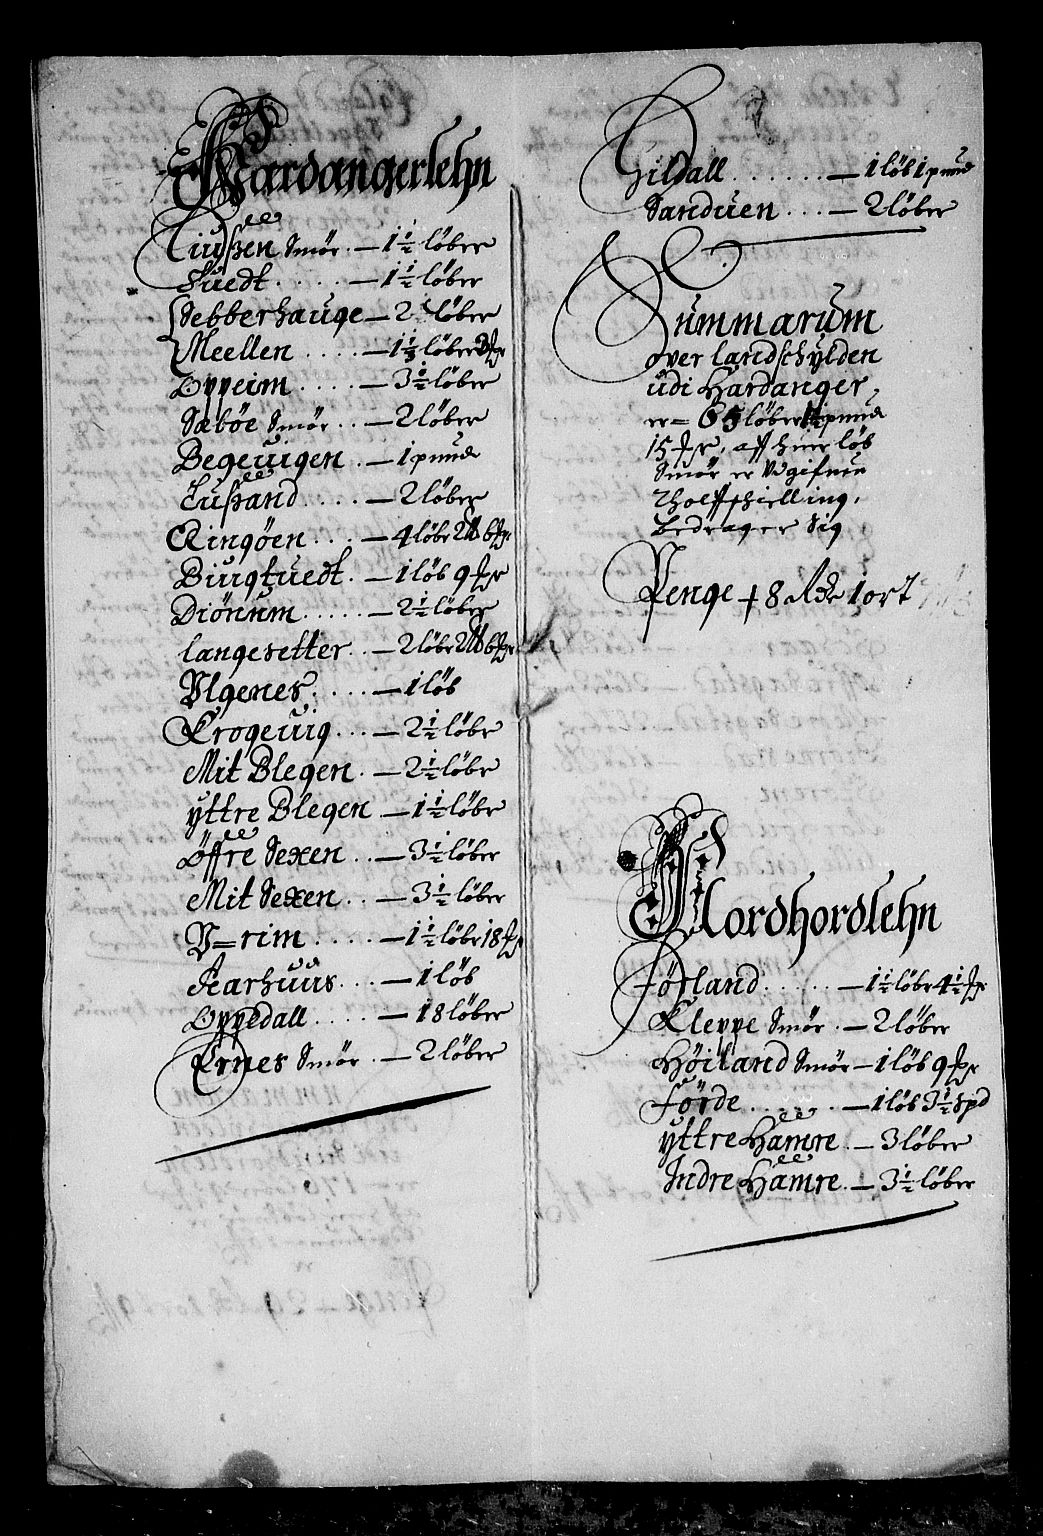 Hardangerlehn
Tiussen Smör . — 1 1/2 löber
Tuedt . . . . . — 1 1/2 löber
Sebberhauge — 2 löber
Meellen . . . . — 1 1/2 löber
Oppeim . . . . . — 3 1/2 löber
Sæböe Smör . . . — 2 löber
Begeuigen . — 1 pund
Lussand . . . . — 2 löber
Ringöen . . . — 4 löbr
Diugtuedt . — 1 löb 9
Diönum . . . . . — 2 1/2 löber
Langesetter . . — 2 löbr
Vlgenes . . . . . — 1 löb
Krogeuig . . . — 2 1/2 löbr
Mit Blegen . — 2 1/2 löbr
yttre Blegen — 1 1/2 löbr
Öffre Sexen . . — 3 1/2 löber
Mit Sexen . . — 3 1/2 löber
V=rim . . . . — 1 1/2 löbr 18
Aarhuus . . . — 1 löb
Oppedall . . . . — 18 löber
Ernes Smör . . — 2 löber
Gildall . . . . . . — 1 löb 1 pund
Sanduen . . . — 2 löber
Summarum
over landschylden
udi Hardanger,
er= 65 löber pund
15 , aff huer löb
Smör er Vdgifuen
Tholfschielling,
Bedrager Sig
Penge + 8 Rdr 1 ort
Nordhordlehn
Förland . . . . . . — 1 1/2 löbr 4 1/2
Kleppe Smör . — 2 löber
Höiland Smör — 1 löb 9
Förde . . . . . . — 1 löb 3 1/2 spd
yttre Hamre . — 3 löber
Indre Hamre . — 3 1/2 löber